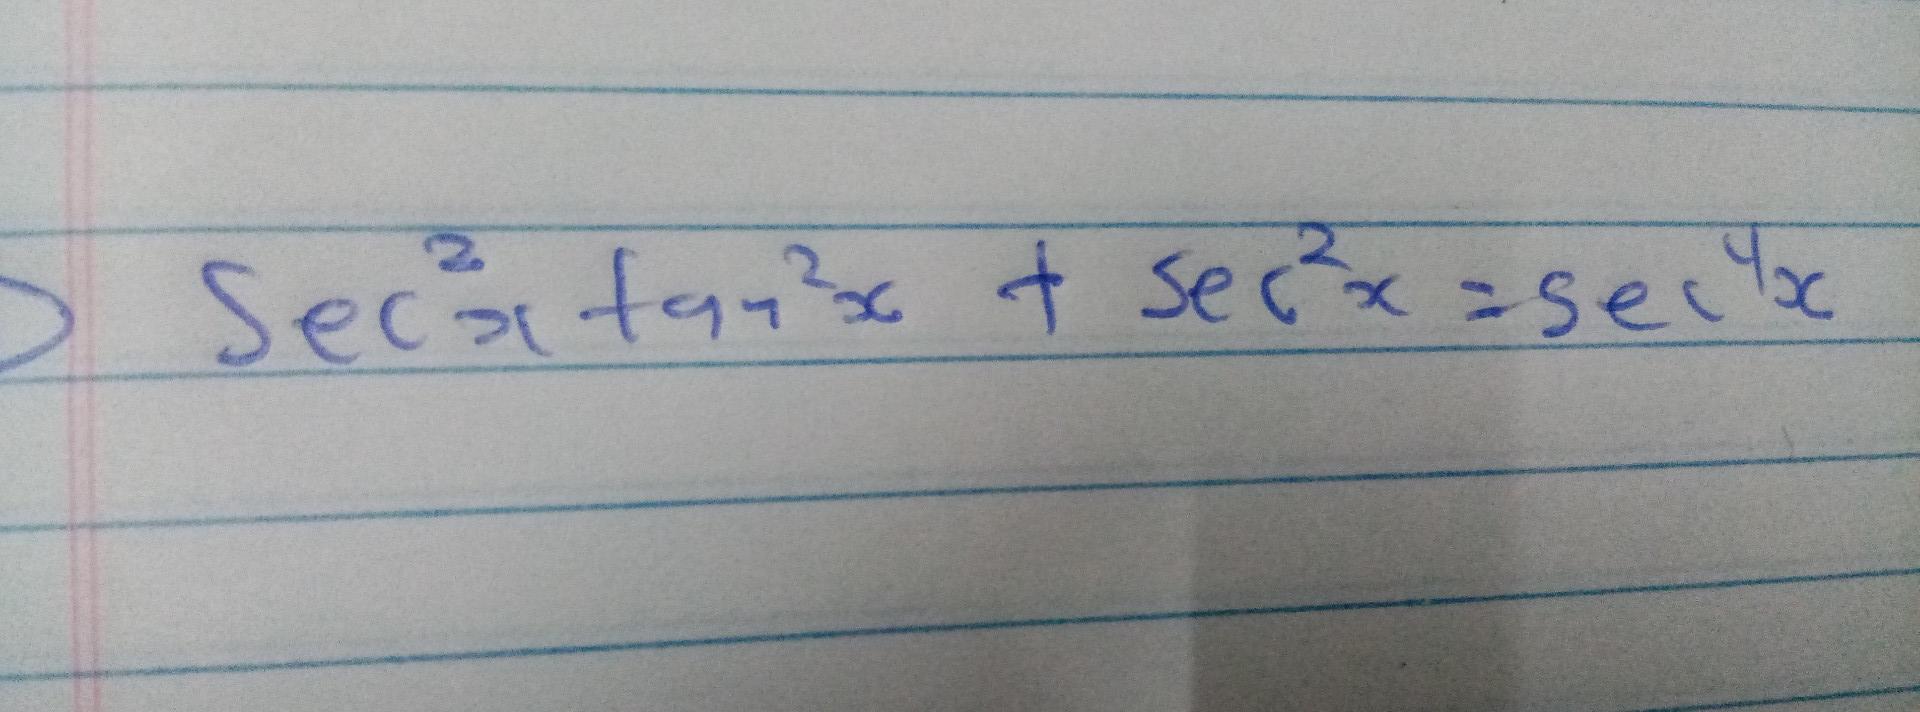 ) Sec²x tan²x + sec²x = sec⁴x